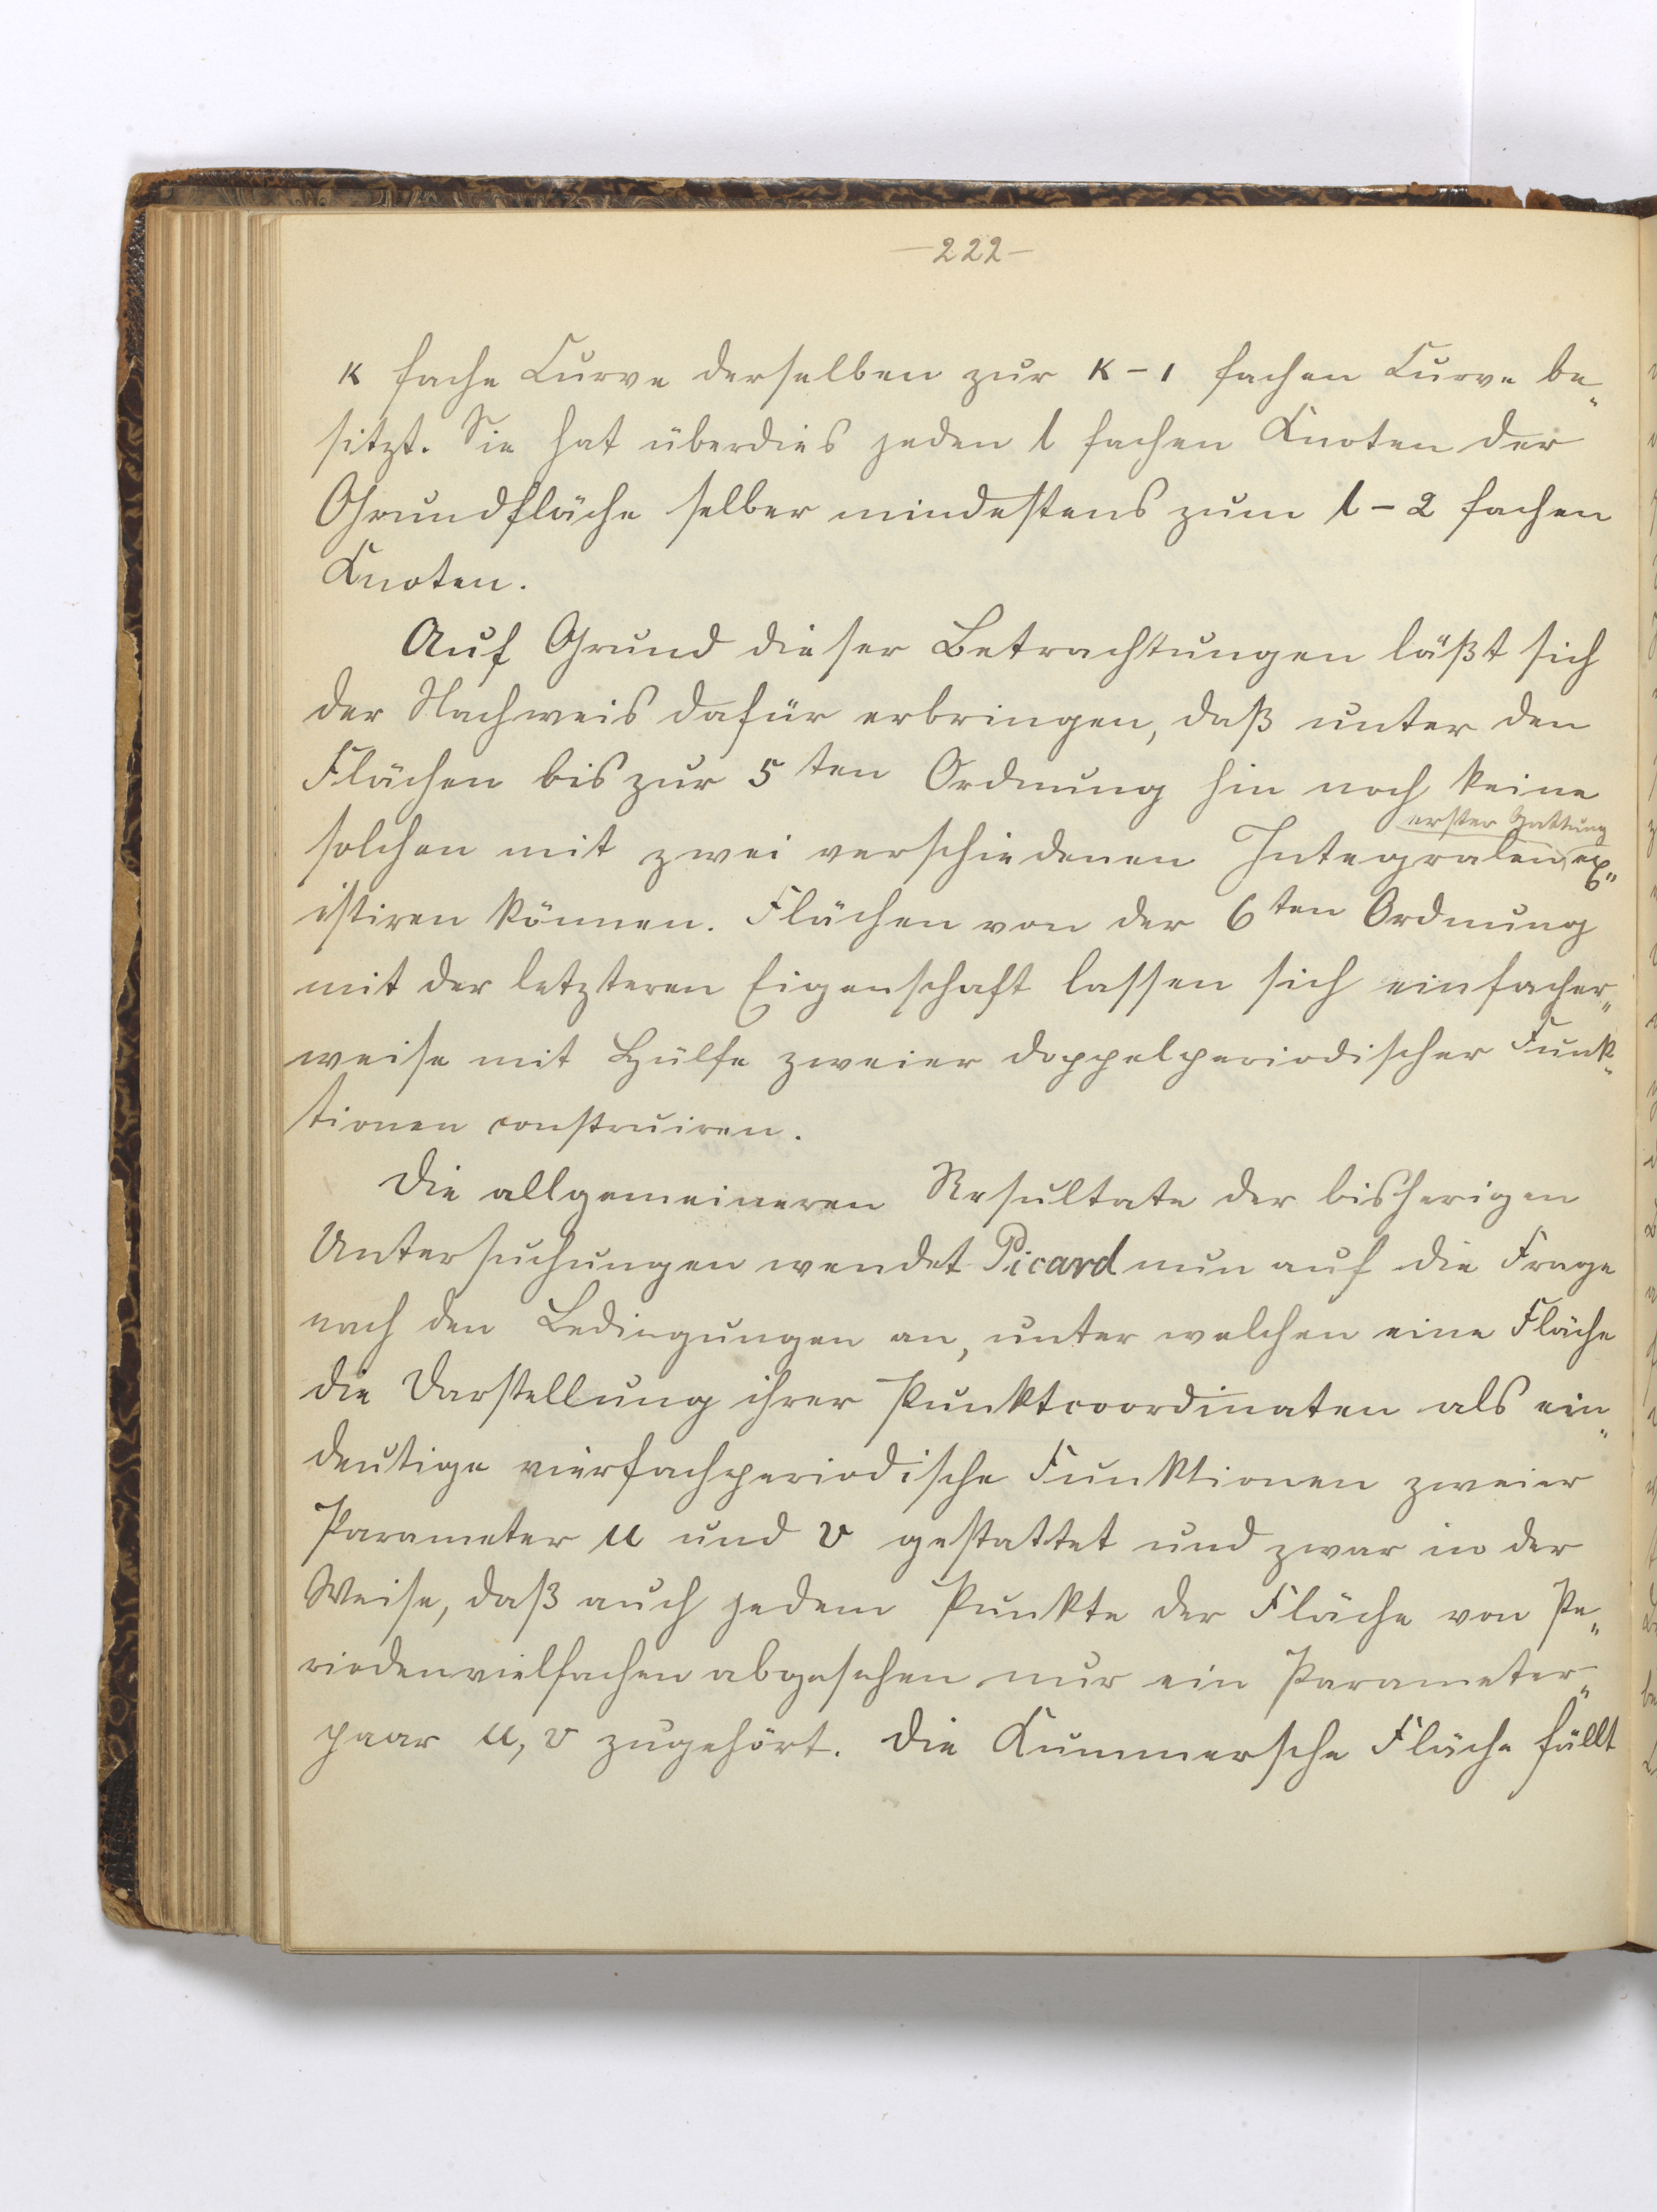 —222—
K fache Curve derselben zur K-1 fachen Curve be„
sitzt. Sie hat überdies jeden l fachen Knoten der
Grundfläche selber mindestens zum l-2 fachen
Knoten.
Auf Grund dieser Betrachtungen läßt sich
der Nachweis dafür erbringen, daß unter den
Flächen bis zur 5ten Ordnung hin noch keine
erster Gattung
solchen mit zwei verschiedenen Integralen ex„
istiren können. Flächen von der 6ten Ordnung
mit der letzteren Eigenschaft lassen sich einfacher„
weise mit Hülfe zweier doppelperiodischer Funk„
tionen construiren.
Die allgemeineren Resultate der bisherigen
Untersuchungen wendet Picard nun auf die Frage
nach den Bedingungen an, unter welchen eine Fläche
die Darstellung ihrer Punktcoordinaten als ein„
deutige vierfachperiodische Funktionen zweier
Parameter u und v gestattet und zwar in der
Weise, daß auch jedem Punkte der Fläche von Pe„
riodenvielfachen abgesehen nur ein Parameter„
paar u, v zugehört. Die Kummersche Fläche fällt